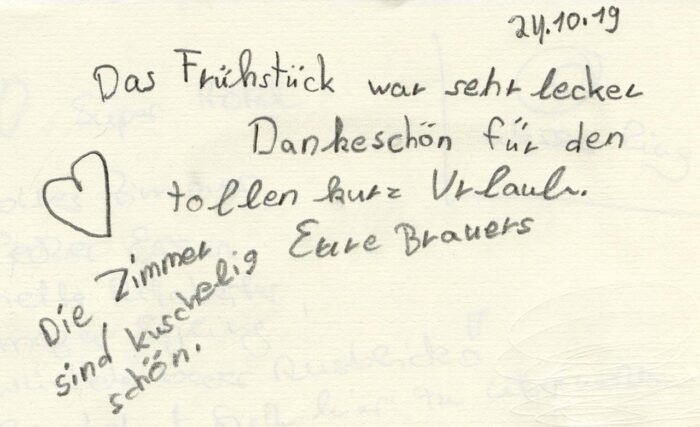 24.10.19
Das Frühstück war sehr lecker
Dankeschön für den
tollen kurz Urlaub.
Eure Brauers
Die Zimmer
sind kuschelig
schön.